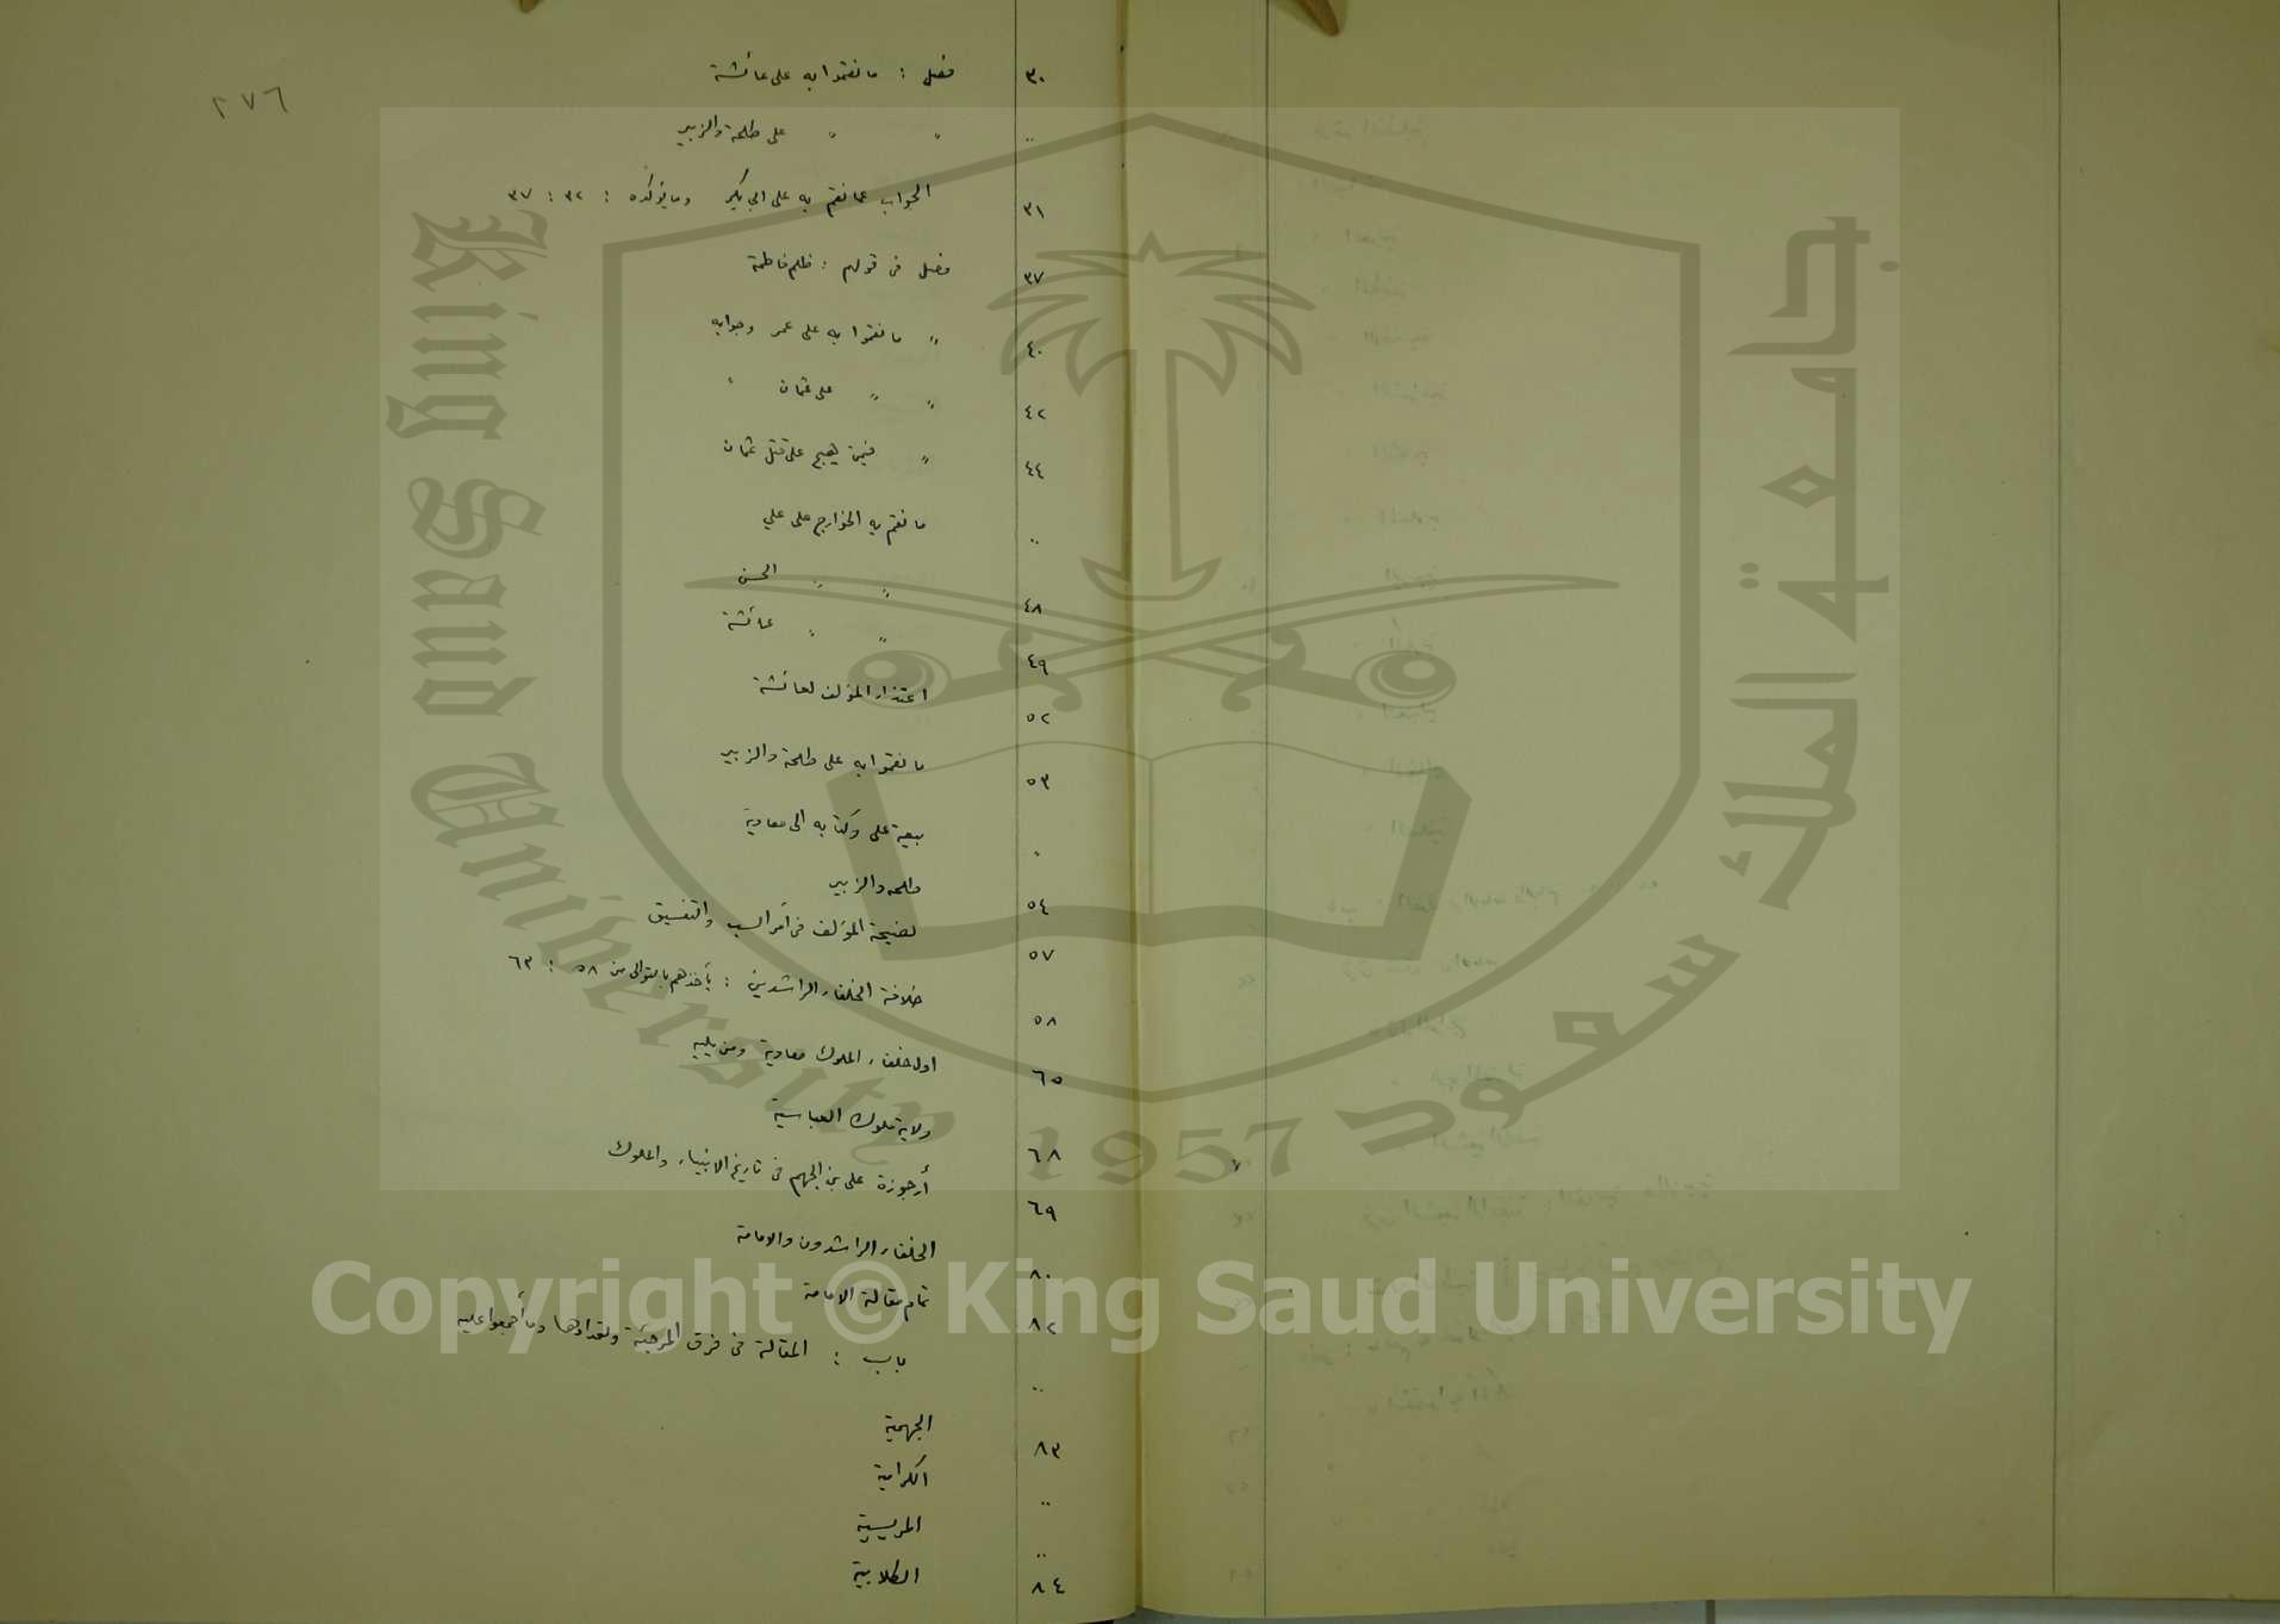 ٢٧٦
٣٠ فصل : ما نقموا به على عائشة
〃 〃 〃 على طلحة والزبير
٣١ الجواب عما نقم به على ابي بكر وما يؤكده : ٣٢ : ٣٧
٣٧ فصل في قولهم : ظلم فاطمة
٤٠ 〃 ما نقموا به على عمر وجوابه
٤٢ 〃 〃 على عثمان 〃
٤٤ 〃 فيمن هيج على قتل عثمان
〃 ما نقم به الخوارج على علي
٤٨ 〃 〃 الحسن
٤٩ 〃 〃 عائشة
٥٢ اعتذار المؤلف لعائشة
٥٣ ما نقموا به على طلحة والزبير
〃 بيعة على وكتابه الى معاوية
٥٤ طلحه والزبير
٥٧ نصيحة المؤلف في أمر السب والتفسيق
٥٨ خلافة الخلفاء الراشدين : يأخذهم بالتوالى من ٥٨ : ٦٣
٦٥ اول خلفاء الملوك معاوية ومن يليه
٦٨ ولاية ملوك العباسية
٦٩ أرجوزة على بن الجهم في تاريخ الانبياء والملوك
٨٠ الخلفاء الراشدون والامامة
٨٢ تمام مقالة الامامة
〃 باب : المقالة في فرق المرجئة وتعدادها وما أجمعوا عليه
٨٣ الجهمية
〃 الكرامية
〃 المريسية
٨٤ الكلابية
King Saud University
1957
جامعة الملك سعود
Copyright © King Saud University